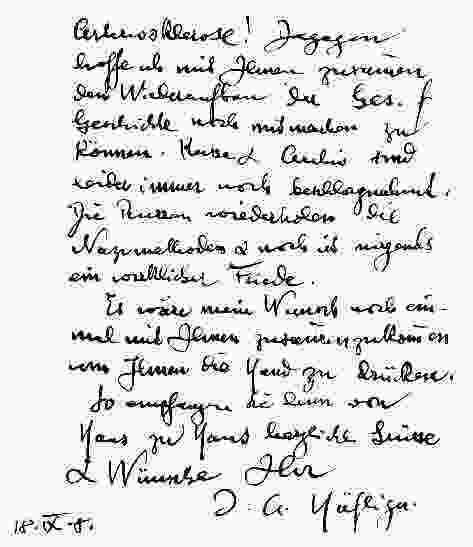 Arteriosklerose! Dagegen
hoffe ich mit Ihnen zusammen
den Wiederaufbau der Ges. f
Geschichte noch mitmachen zu
können. Kasse & Archiv sind
leider immer noch beschlagnahmt.
Die Russen wiederholen die
Nazimethoden & noch ist nirgends
ein wirklicher Friede.
Es wäre mein Wunsch noch ein-
mal mit Ihnen zusammenzukommen
um Ihnen die Hand zu drücken.
So empfangen Sie denn von
Haus zu Haus herzliche Grüsse
& Wünsche Ihr
J. A. Häfliger.
18. IX. 8.